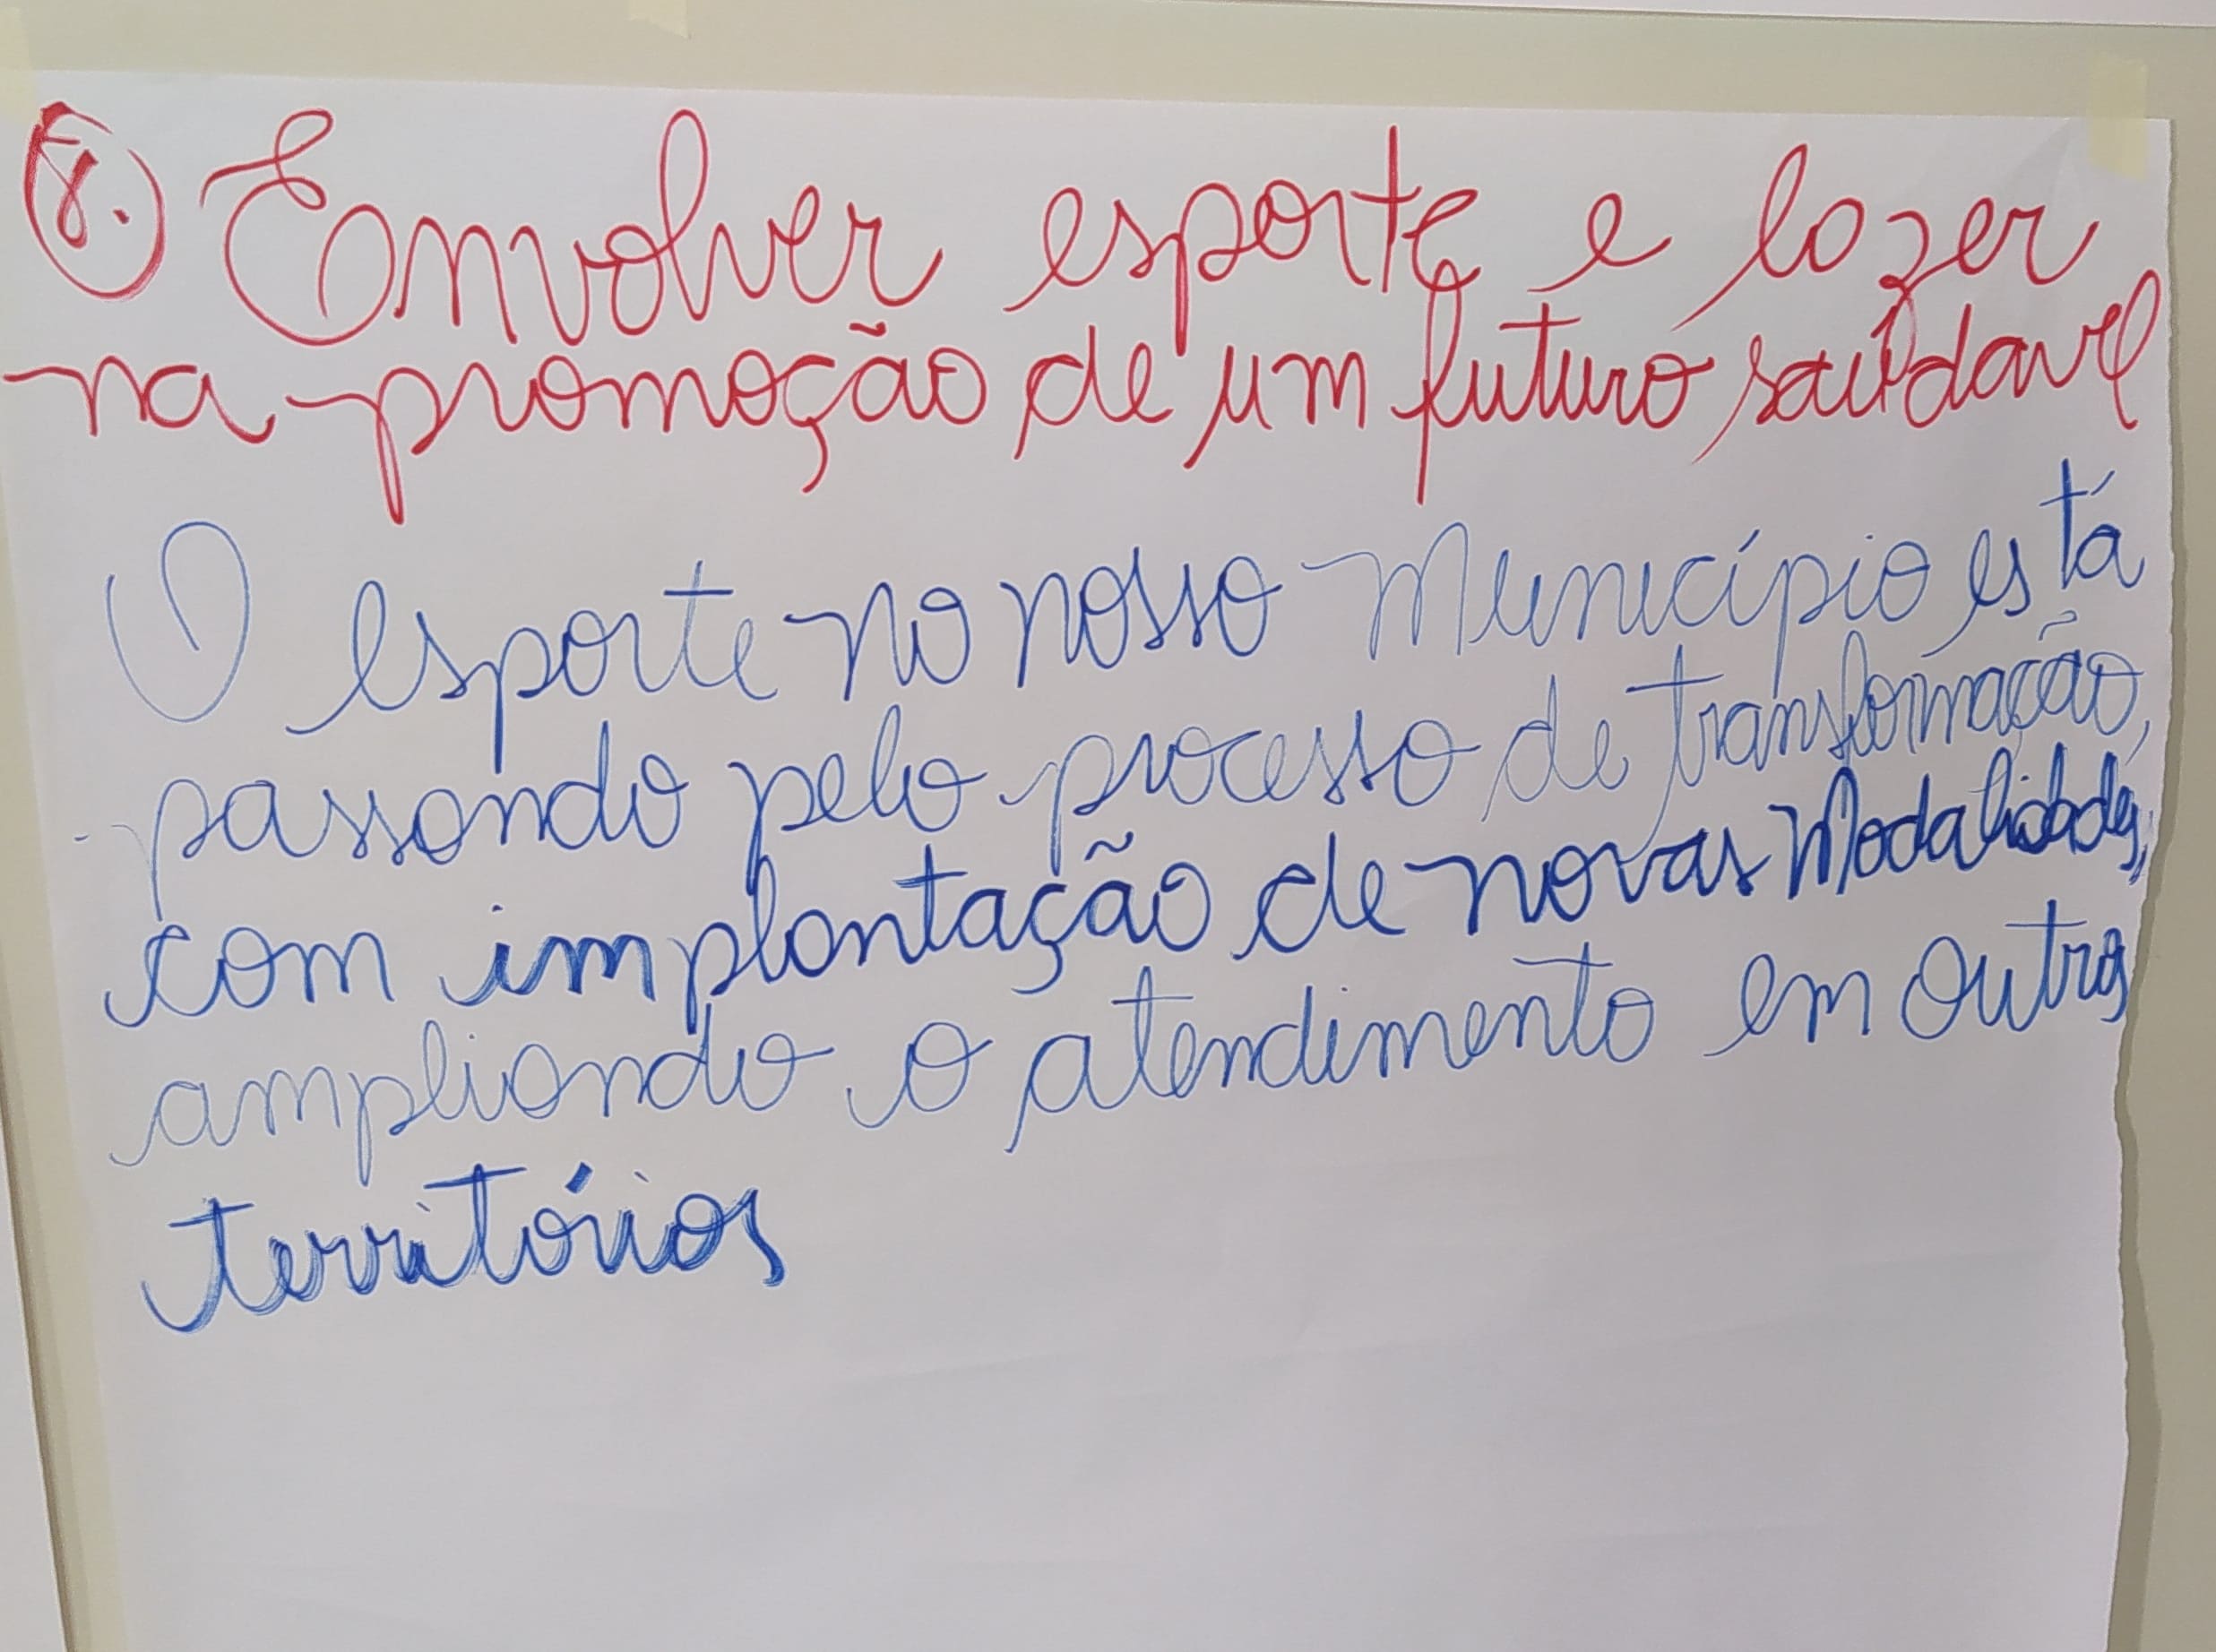 8. Envolver esporte e lazer
na promoção de um futuro saúdavel
O esporte no nosso Município está
passando pelo processo de transformação,
com implantação de novas Modalidades,
ampliando o atendimento em outros
territórios